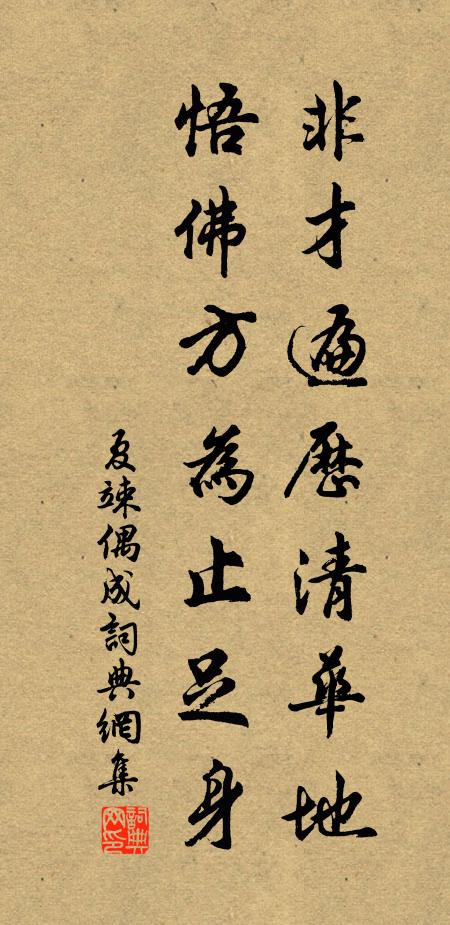 非才遍歷清華地
悟佛方為止足身
夏竦偶成詞典網集
詞典网印